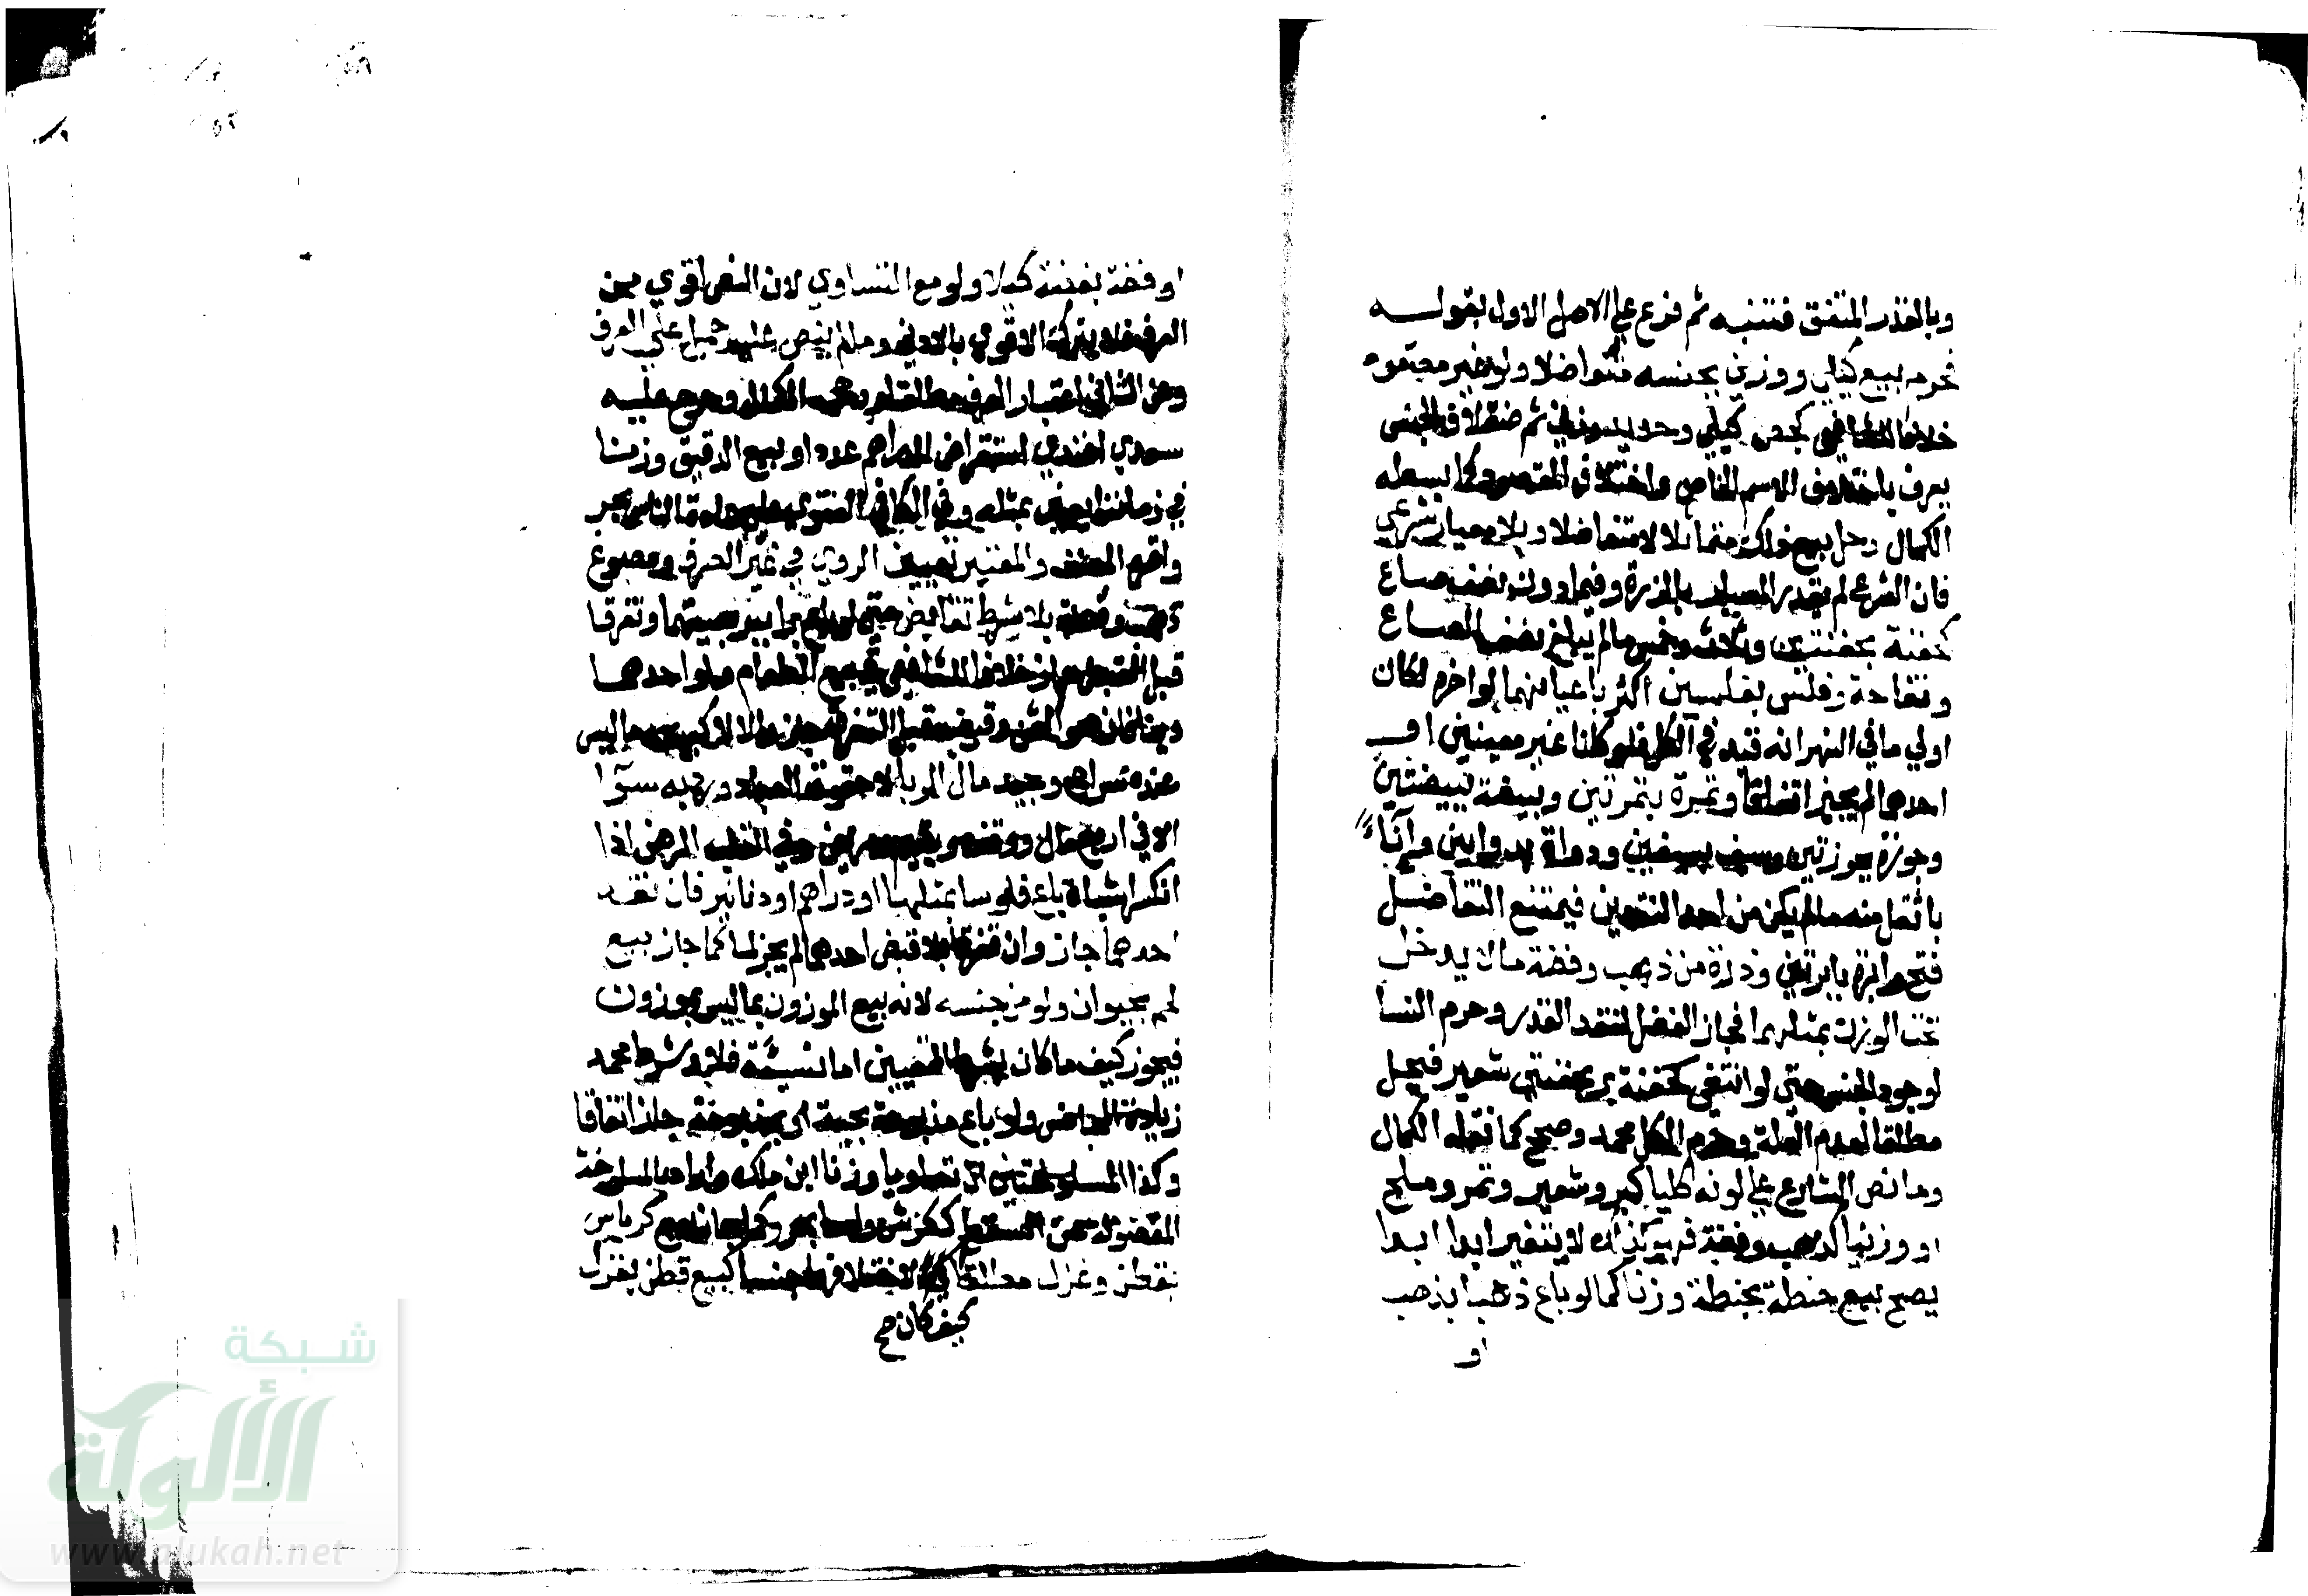 وبالقدر المتفق فتنبه ثم فرع على الاصل الاول بقوله
فحرم بيع كيلي ووزني بجنسه متفاضلا ولو غير مطعوم
خلافا للشافعي كجص كيلي وحديد وزني ثم اختلاف الجنس
يعرف باختلاف الاسم الخاص واختلاف المقصود كما بسطه
الكمال وحل بيع ذلك متماثلا لا متفاضلا وبلا معيار شرعي
فان الشرع لم يقدر المعيار بالذرة وفيما دون نصف صاع
كحفنة بحفنتين وثلاث وخمس ما لم يبلغ نصف الصاع
وتفاحة وفلس بفلسين اكثر باعيانهما لو اخره لكان
اولي ما في النهر انه قيد في الكل فلو كانا غير معينين او
احدهما لم يجز اتفاقا وتمرة بتمرتين وبيضة ببيضتين
وجوزة بجوزتين وسيف بسيفين ودواة بدواتين واناء
باثقل منه ما لم يكن من احد النقدين فيمتنع التفاضل
فتح وابرة بابرتين وذرة من ذهب وفضة مما لا يدخل
تحت الوزن بمثليها فجاز الفضل لفقد القدر وحرم النسا
لوجود الجنس حتى لو انتفى كحفنة بر بحفنتي شعير فيحل
مطلقا لعدم العلة وحرم الكل محمد وصحح كما نقله الكمال
وما نص الشارع على كونه كليا كبر وشعير وتمر وملح
او وزنيا كذهب وفضة فهو كذلك لا يتغير ابدا
يصح بيع حنطة بحنطة وزنا كما لو باع ذهبا بذهب
او
او فضة بفضة كيلا ولو مع التساوي لان النص اقوي من
العرف فلا يترك الاقوي بالادنى وما لم ينص عليه حمل على العرف
وعن الثاني اعتبار العرف مطلقا ورجحه الكمال وخرج عليه
سعدي افندي استقراض الدراهم عددا وبيع الدقيق وزنا
في زماننا يعني بمثله وفي الكافي الفتوى على عادة الناس بحر
واقره المصنف والمعتبر تعيين الربوي في غير الصرف ومصوغ
ذهب وفضة بلا شرط تقابض حتى لو باع برا ببر بعينهما وتفرقا
قبل القبض جاز خلافا للشافعي في بيع الطعام ولو احدهما
دينا فان هو الثمن وقبضه قبل التفرق جاز والا لا كبيعه ما ليس
عنده سراج وجيد مال الربا لا حقوق العباد ورديه سوا
الا في اربع مال وقف ويتيم ومريض وفي القلب الرهن اذا
انكسر اشباه باع فلوسا بمثلها او دراهم او دنانير فان نقد
احدهما جاز وان تفرقا بلا قبض احدهما لم يجز لما كما جاز بيع
لحم بحيوان ولو من جنسه لانه بيع الموزون بما ليس بموزون
فيجوز كيف ما كان بشرط التعيين اما نسيئة فلا وشرط محمد
زيادة المجانس ولو باع مذبوحة بحية او بمذبوحة جاز اتفاقا
وكذا المسلوختين ان تساويا وزنا ابن ملك واراد بالمسلوخة
المفصولة عن السقط ككرش وامعا بحر وكما جاز بيع كرباس
بقطن وغزل مطلقا كيف كان لاختلافهما جنسا كبيع قطن بغزل
كيف كان صح
شبكة
الألوكة
www.alukah.net